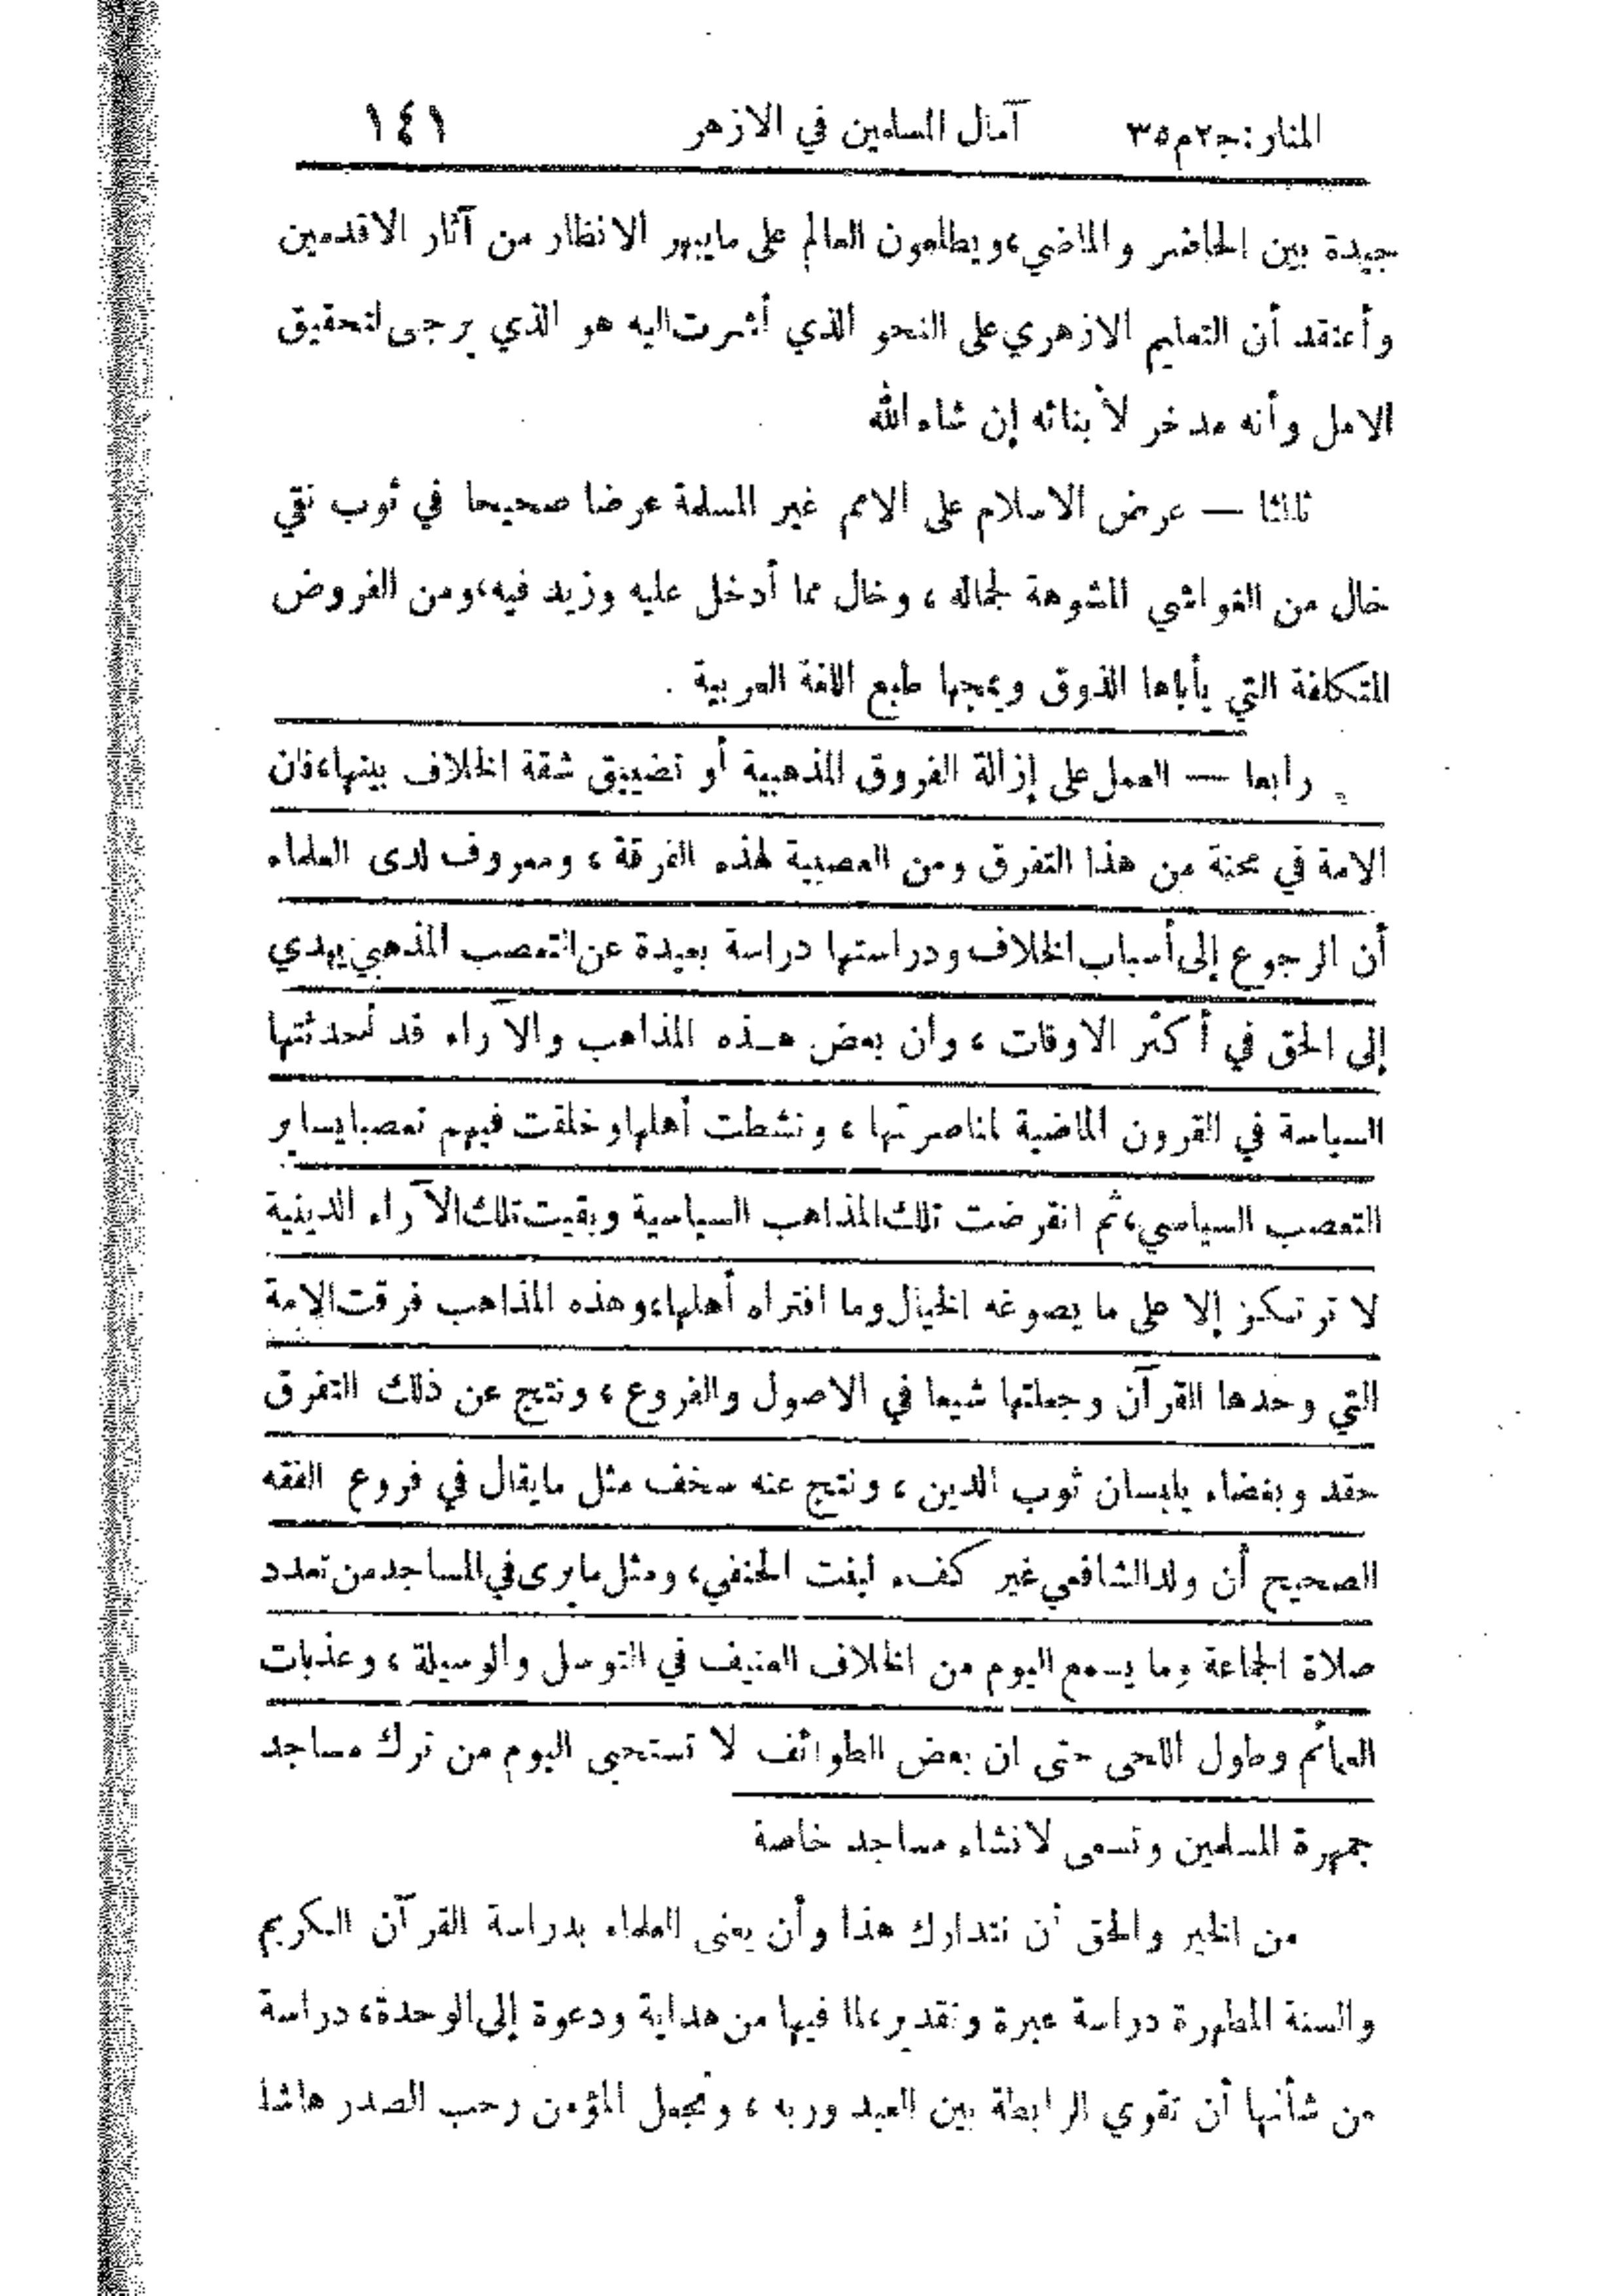 المنار: ج٢م٣٥ آمال المسلمين في الازهر ١٤١
جيدة بين الحاضر والماضي، ويطلعون العالم على مايبهر الانظار من آثار الاقدمين
وأعتقد أن التعليم الازهري على النحو الذي أشرت اليه هو الذي يرجى لتحقيق
الامل وأنه مدخر لأبنائه إن شاء الله
ثالثا — عرض الاسلام على الامم غير المسلمة عرضا صحيحا في ثوب نقي
خال من الغواشي المشوهة لجماله، وخال مما أدخل عليه وزيد فيه، ومن الفروض
المتكلفة التي يأباها الذوق ويمجها طبع اللغة العربية.
رابعا — العمل على إزالة الفروق المذهبية أو تضييق شقة الخلاف بينها، فان
الامة في محنة من هذا التفرق ومن العصبية لهذه الفرقة، ومعروف لدى العلماء
أن الرجوع إلى أسباب الخلاف ودراستها دراسة بعيدة عن التعصب المذهبي يهدي
إلى الحق في أكثر الاوقات، وان بعض هذه المذاهب والآراء قد أحدثتها
السياسة في القرون الماضية لمناصرتها، ونشطت أهلها وخلقت فيهم تعصبا يساير
التعصب السياسي، ثم انقرضت تلك المذاهب السياسية وبقيت تلك الآراء الدينية
لا ترتكز إلا على ما يصوغه الخيال وما افتراه أهلها، وهذه المذاهب فرقت الامة
التي وحدها القرآن وجعلتها شيعا في الاصول والفروع، ونتج عن ذلك التفرق
حقد وبغضاء يلبسان ثوب الدين، ونتج عنه سخف مثل مايقال في فروع الفقه
الصحيح أن ولد الشافعي غير كفء لبنت الحنفي، ومثل مايرى في المساجد من تعدد
صلاة الجماعة وما يسمع اليوم من الخلاف العنيف في التوسل والوسيلة، وعذبات
العمائم وطول اللحى حتى ان بعض الطوائف لا تستحيي اليوم من ترك مساجد
جمهرة المسلمين وتسعى لانشاء مساجد خاصة
من الخير والحق أن نتدارك هذا وأن يعنى العلماء بدراسة القرآن الكريم
والسنة المطهرة دراسة عبرة وتقدير، لما فيها من هداية ودعوة إلى الوحدة، دراسة
من شأنها أن تقوي الرابطة بين العبد وربه، وتجعل المؤمن رحب الصدر هاشا